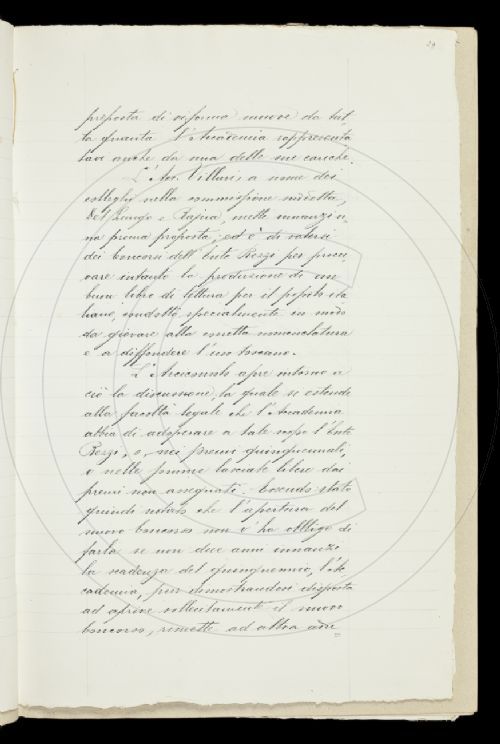 29
proposta di riforma muove da tut-
ta quanta l'Accademia rappresenta
tavi anche da una delle sue cariche.
L'Acc. Villari a nome dei
colleghi nella commissione suddetta,
Del Lungo e Rajna, mette innanzi u-
na prima proposta, ed è di valersi
dei concorsi dell'Ente Rezzi per procu-
rare intanto la produzione di un
buon libro di lettura per il popolo ita
liano, condotto specialmente in modo
da giovare alla esatta nomenclatura
e a diffondere l'uso toscano.
L'Arciconsolo apre intorno a
ciò la discussione, la quale si estende
alla facoltà legale che l'Accademia
abbia di adoperare a tale uopo l'Ente
Rezzi, o, nei premi quinquennali,
o nelle somme lasciate libere dai
premi non assegnati. Essendo stato
quindi notato che l'apertura del
nuovo concorso non v'ha obbligo di
farla se non due anni innanzi
la scadenza del quinquennio, l'Ac
cademia, pur dimostrandosi disposta
ad aprire sollecitamente il nuovo
concorso, rimette ad altra adu